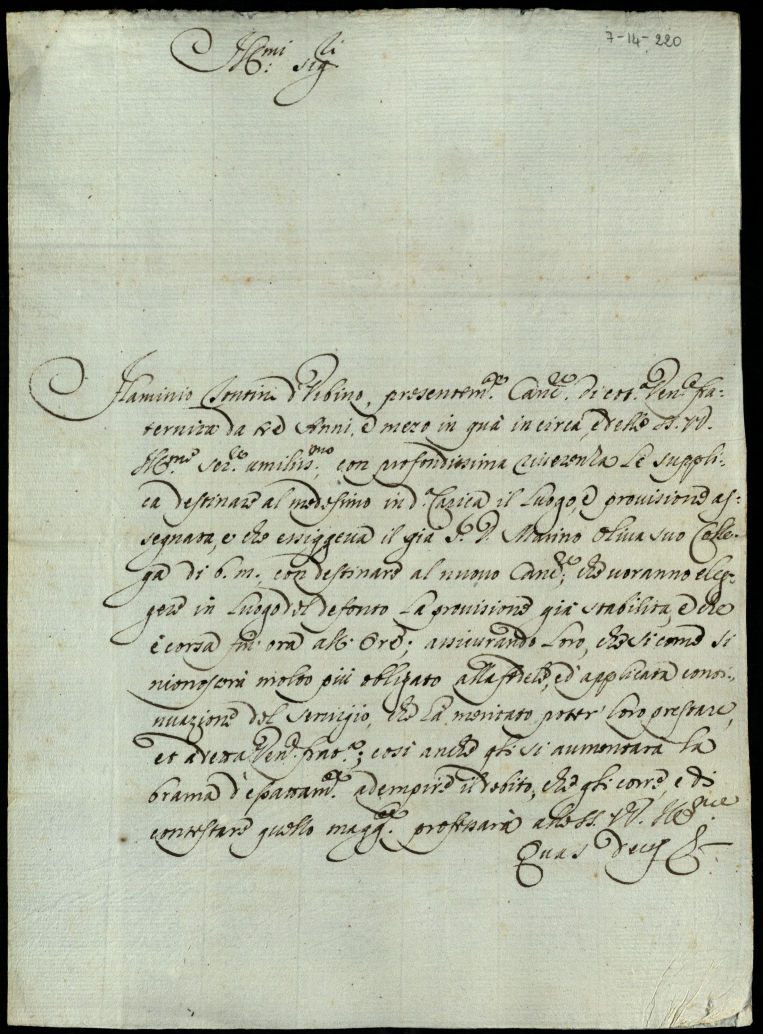 7-14-220
Ill:mi Sig:ri
Flaminio d'Urbino, presentem:te Canc:re di cot:a Ven:e fra-
ternita da tre Anni, e mezo in quà in circa, e delle SS. VV.
Ill:me ser:re umiliss:mo, con profondissima riverenza Le suppli-
ca destinare al medesimo in d:a Carica il Luogo, e provisione as-
segnata, e che essiggeva il già S:r D. Marino Oliva suo Colle-
ga di b. m., con destinare al nuovo Canc:re, che voranno eleg-
gere in Luogo del defonto La provisione già stabilita, e che
è corsa fin ora all' Ore; assicurando Loro, che si come si
riconoscerà molto più obligato alla fedele, ed applicata conti-
nuazione del servigio, che La meritato poter Loro prestare,
et a detta Ven:e frat:a; così anche gli si aumentarà la
brama d'esattam:te adempire il debito, che gli corre, e di
contestare quello magg:re professarà alle SS. VV. Ill:me
Quas Deus &